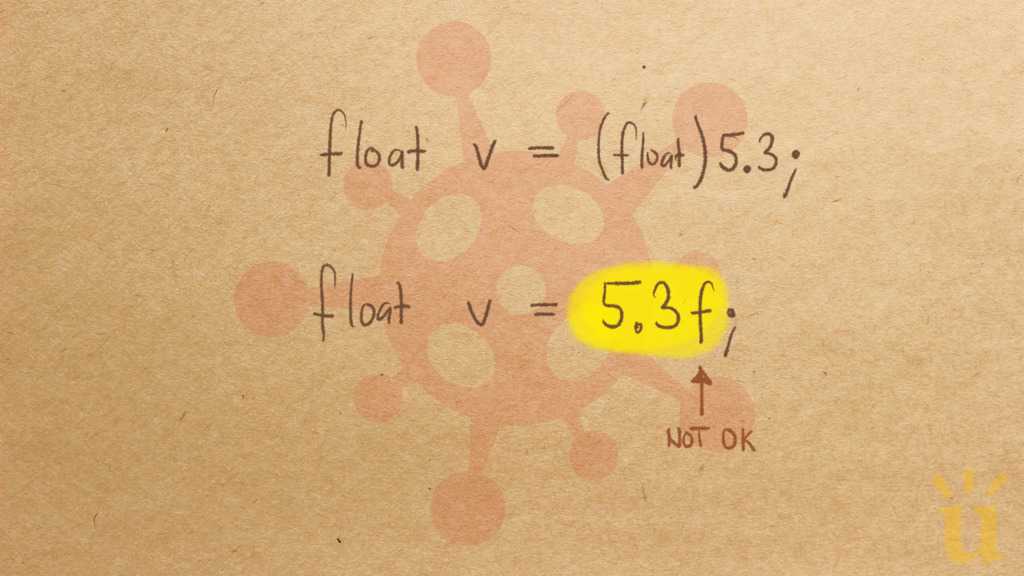 float v = (float)5.3;
float v = 5.3f;
NOT OK
ü